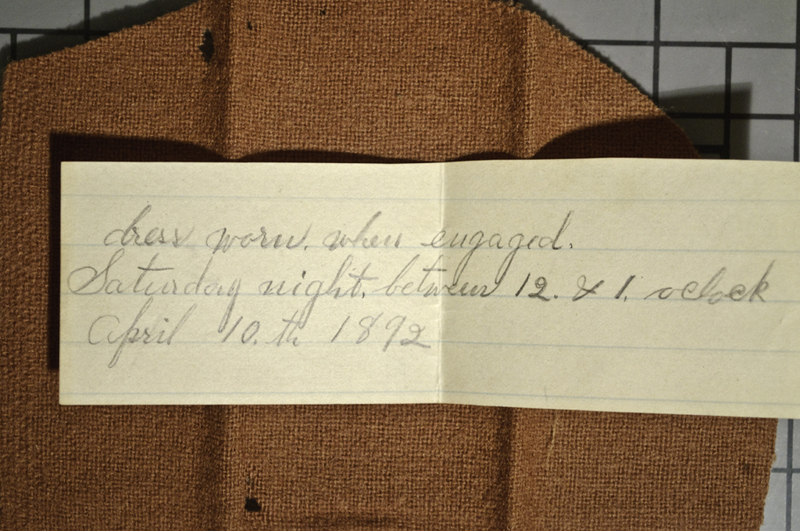 dress worn. when engaged.
Saturday night. between 12. & 1. oclock
April 10. th 1892